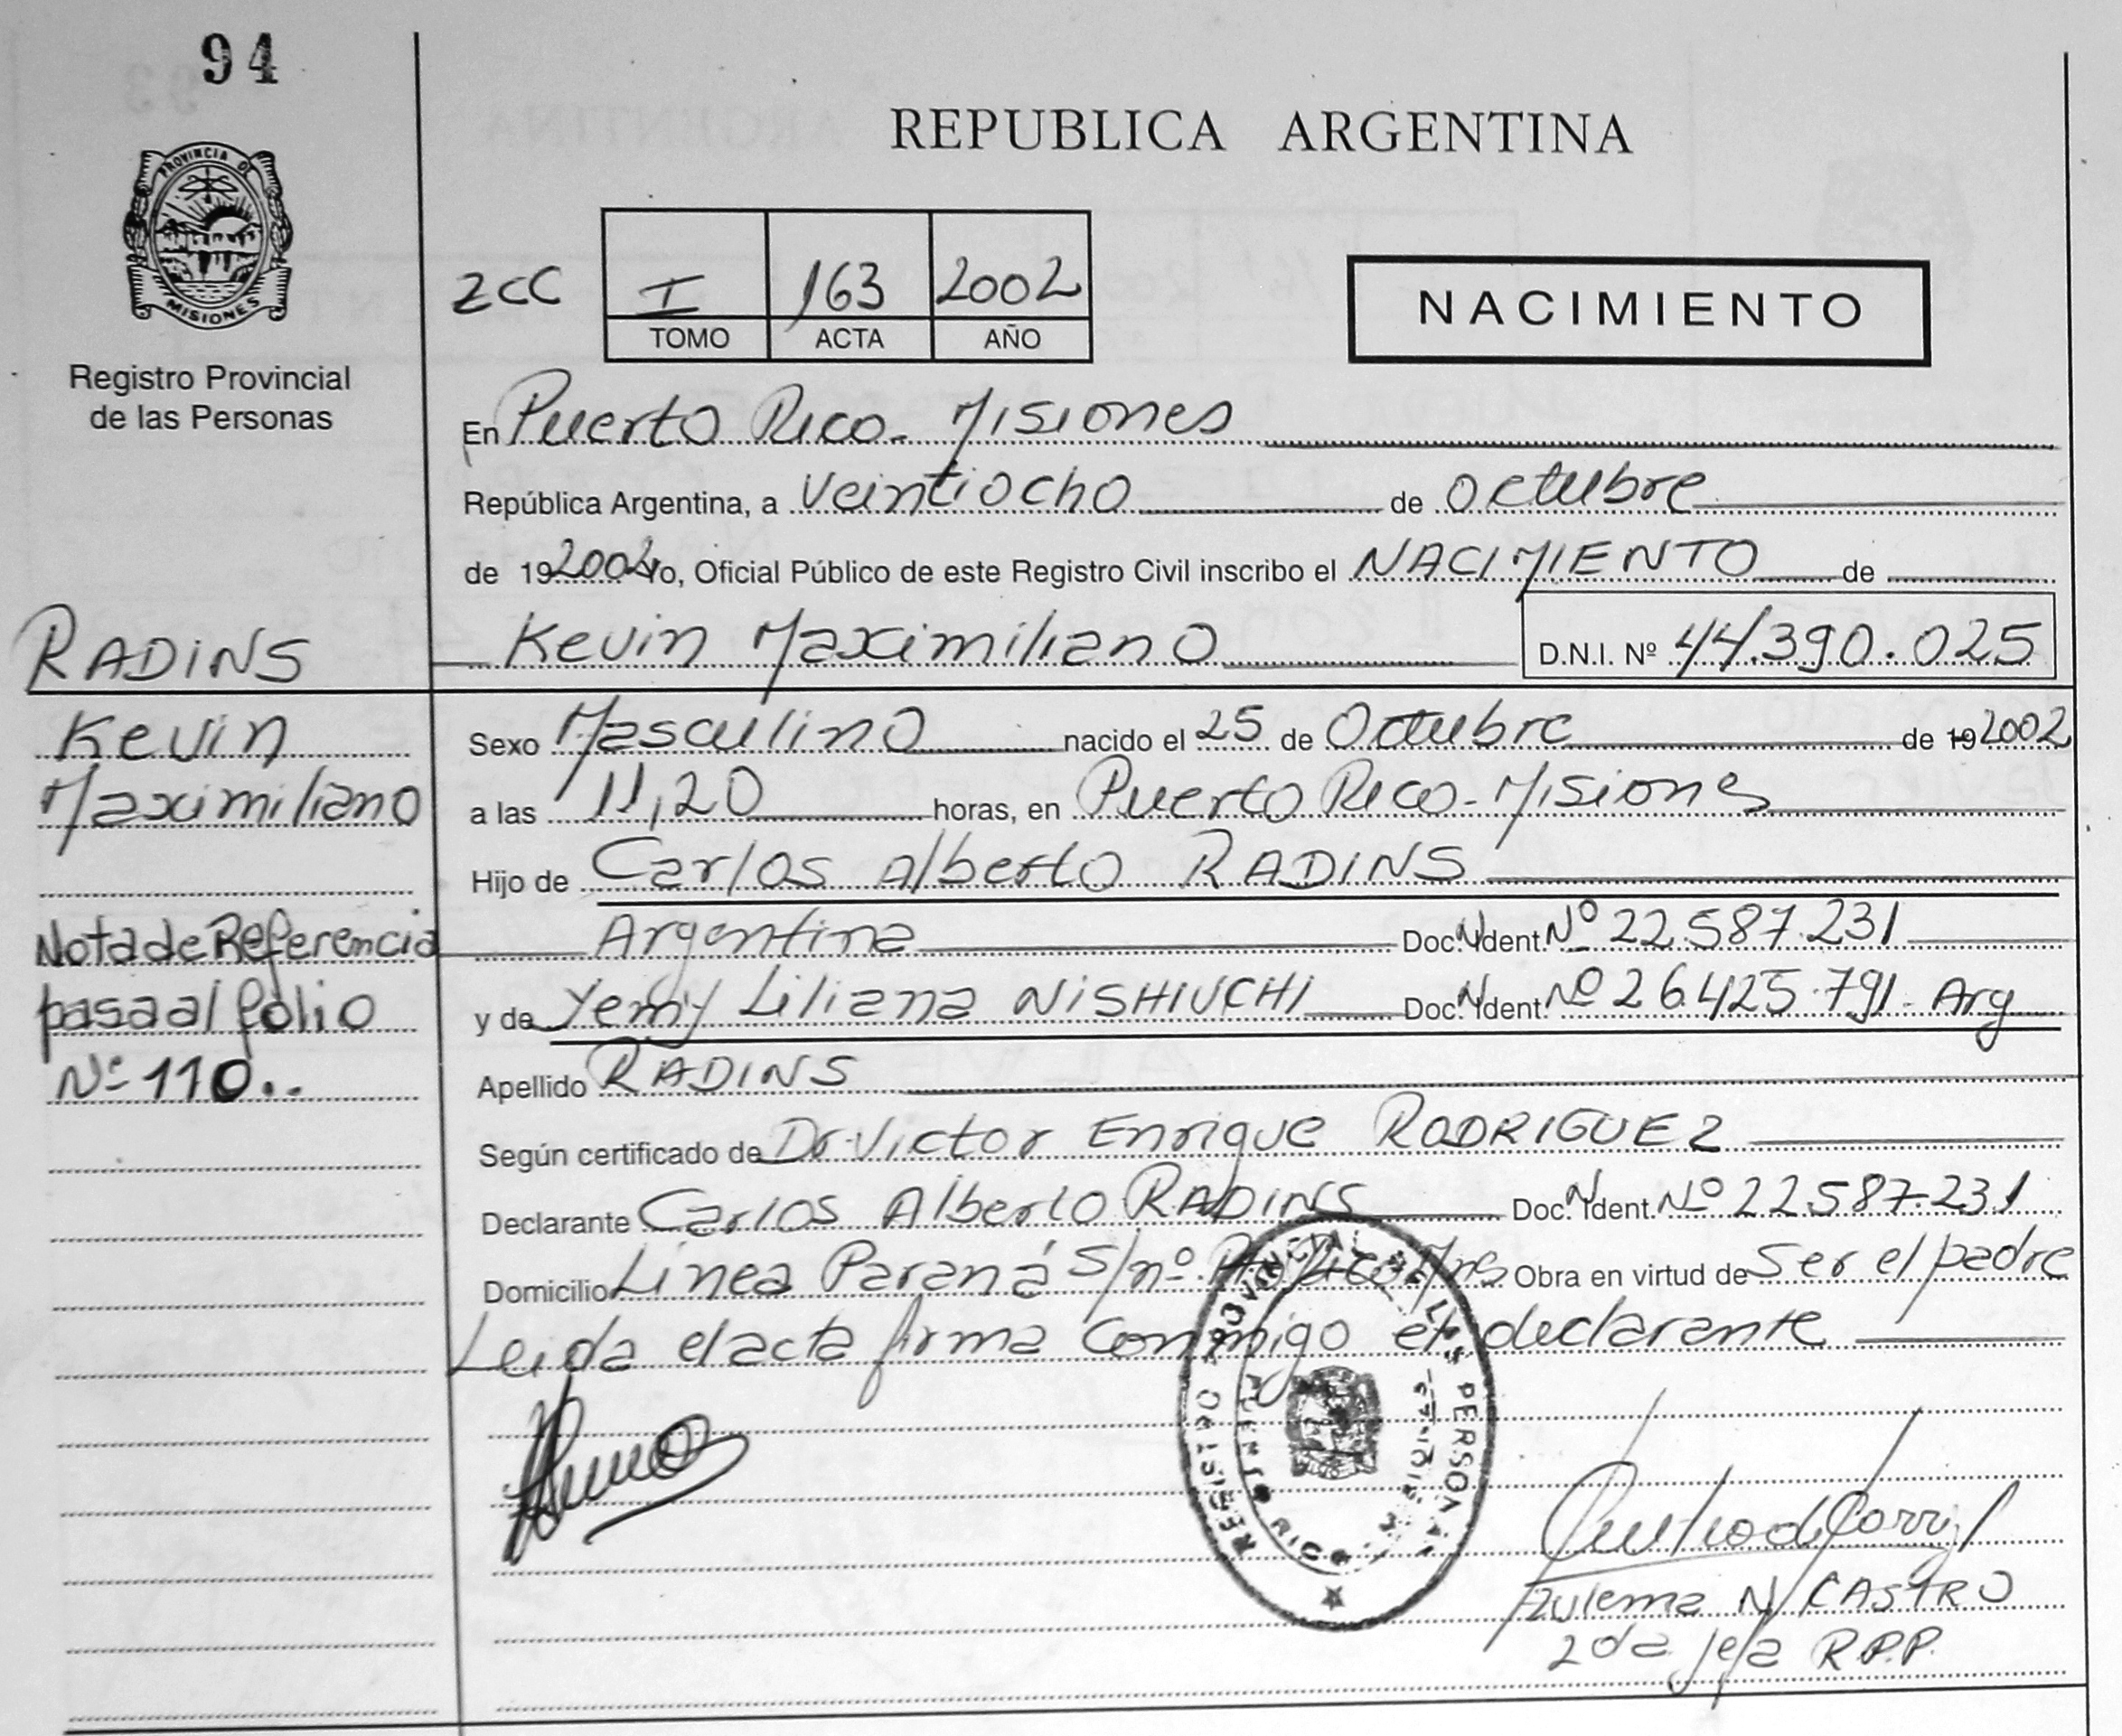 94
REPUBLICA ARGENTINA
PROVINCIA DE
MISIONES
Registro Provincial
de las Personas
ZCC I 163 2002
TOMO ACTA AÑO
NACIMIENTO
En Puerto Rico - Misiones
República Argentina, a Veintiocho de Octubre
de 19 2002 Yo, Oficial Público de este Registro Civil inscribo el NACIMIENTO de
RADINS Kevin Maximiliano D.N.I. Nº 44.390.025
Kevin
Maximiliano
Nota de Referencia
pasa al folio
Nº 110..
Sexo Masculino nacido el 25 de Octubre de 19 2002
a las 11,20 horas, en Puerto Rico - Misiones
Hijo de Carlos Alberto RADINS
Argentina Doc. N. Ident. Nº 22.587.231
y de Yemy Liliana NISHIUCHI Doc. N. Ident. Nº 26.425.791 - Arg
Apellido RADINS
Según certificado de Dr. Victor Enrique RODRIGUEZ
Declarante Carlos Alberto RADINS Doc. N. Ident. Nº 22.587.231
Domicilio Linea Paraná S/nº. Pto Rico Mnes Obra en virtud de Ser el padre
Leida el acta firma Conmigo el declarante
REGISTRO PROVINCIAL DE LAS PERSONAS
PUERTO RICO
MISIONES
Zulema N. CASTRO
2da Jefa R.P.P.